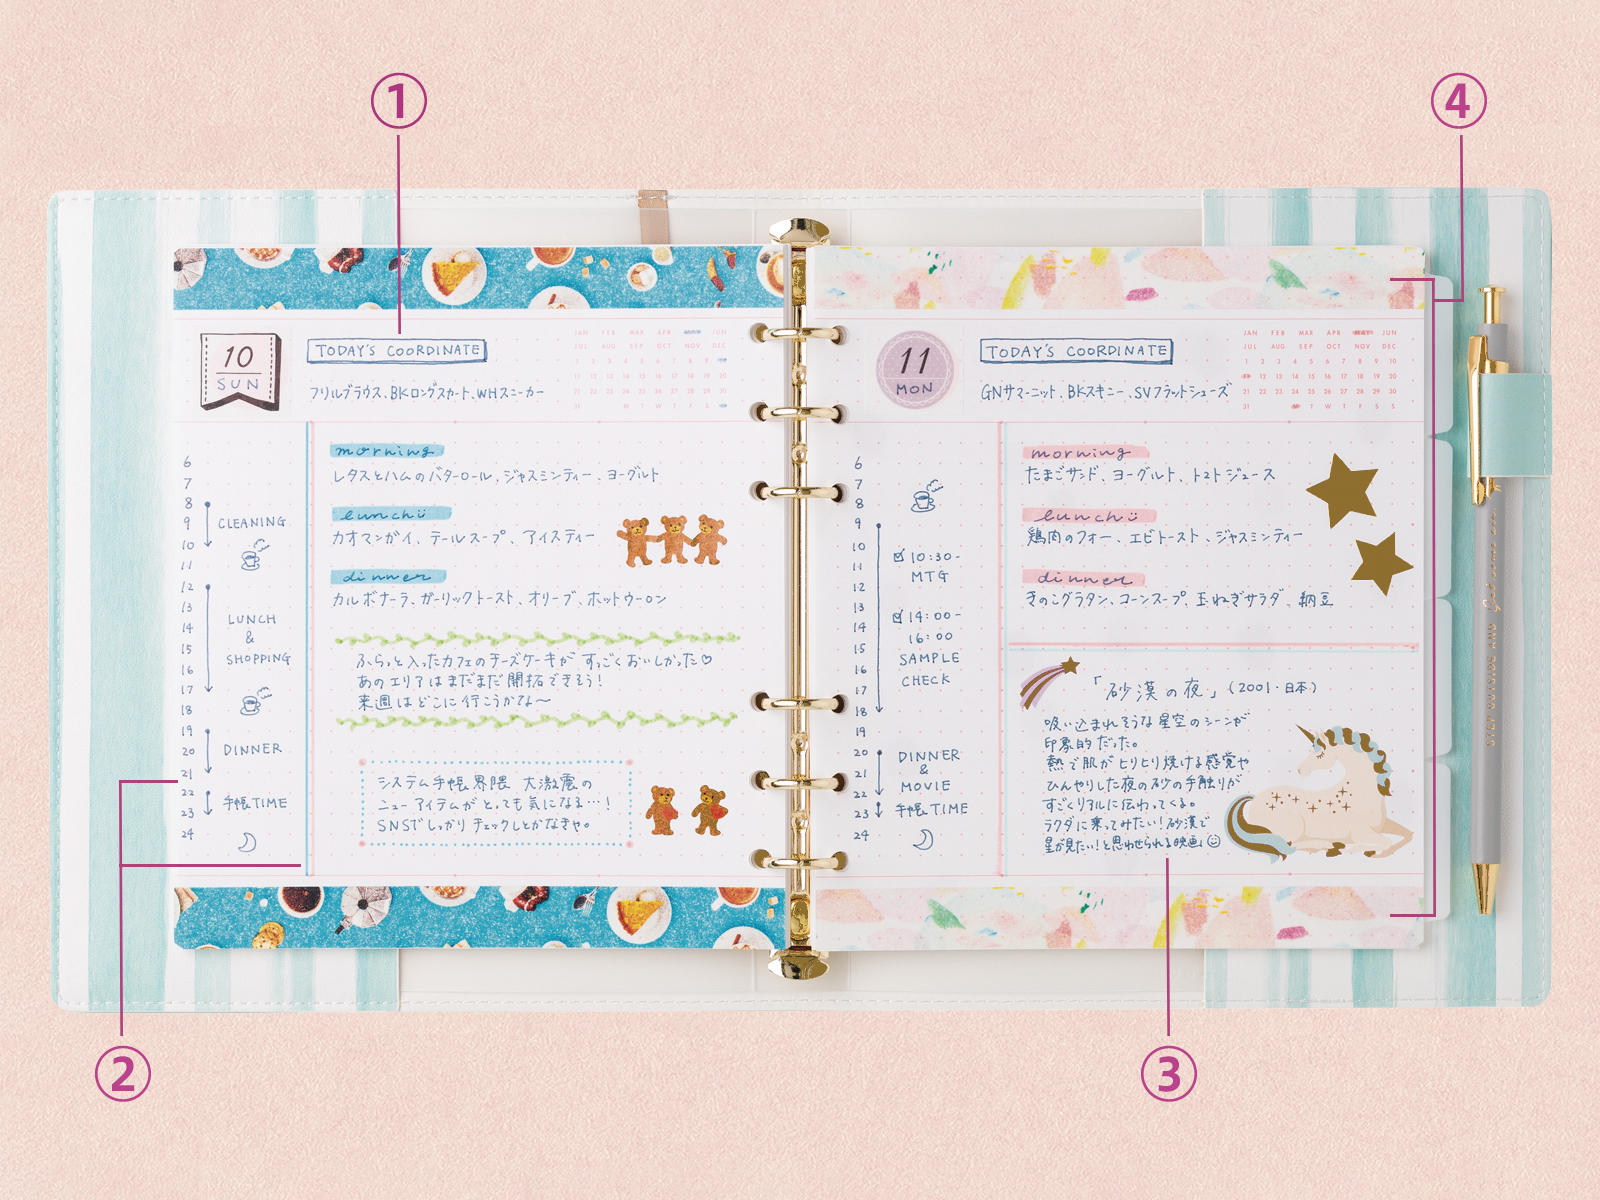 ①
④
10
SUN
TODAY'S COORDINATE
フリルブラウス、BKロングスカート、WHスニーカー
JAN FEB MAR APR JUN
JUL AUG SEP OCT NOV DEC
6
7
8
9 CLEANING
10
11
12
13
14 LUNCH
&
15 SHOPPING
16
17
18
19
20 DINNER
21
22
23 手帳TIME
24
morning
レタスとハムのバターロール、ジャスミンティー、ヨーグルト
lunch
カオマンガイ、テールスープ、アイスティー
dinner
カルボナーラ、ガーリックトースト、オリーブ、ホットウーロン
ふらっと入ったカフェのチーズケーキがすっごくおいしかった♡
あのエリアはまだまだ開拓できそう!
来週はどこに行こうかな〜
システム手帳界隈 大激震の
ニューアイテムがとっても気になる…!
SNSでしっかりチェックしとかなきゃ。
11
MON
TODAY'S COORDINATE
GNサマーニット、BKスキニー、SVフラットシューズ
JAN FEB MAR APR MAY JUN
JUL AUG SEP OCT NOV DEC
6
7
8
9
10 ☑10:30-
11 MTG
12
13
14 ☑14:00-
15 16:00
16 SAMPLE
17 CHECK
18
19
20 DINNER
21 &
22 MOVIE
23 手帳TIME
24
morning
たまごサンド、ヨーグルト、トマトジュース
lunch
鶏肉のフォー、エビトースト、ジャスミンティー
dinner
きのこグラタン、コーンスープ、玉ねぎサラダ、納豆
「砂漠の夜」(2001・日本)
吸い込まれそうな星空のシーンが
印象的だった。
熱で肌がヒリヒリ焼ける感覚や
ひんやりした夜の砂の手触りが
すごくリアルに伝わってくる。
ラクダに乗ってみたい!砂漠で
星が見たい!と思わせられる映画
STEP OUTSIDE AND
②
③